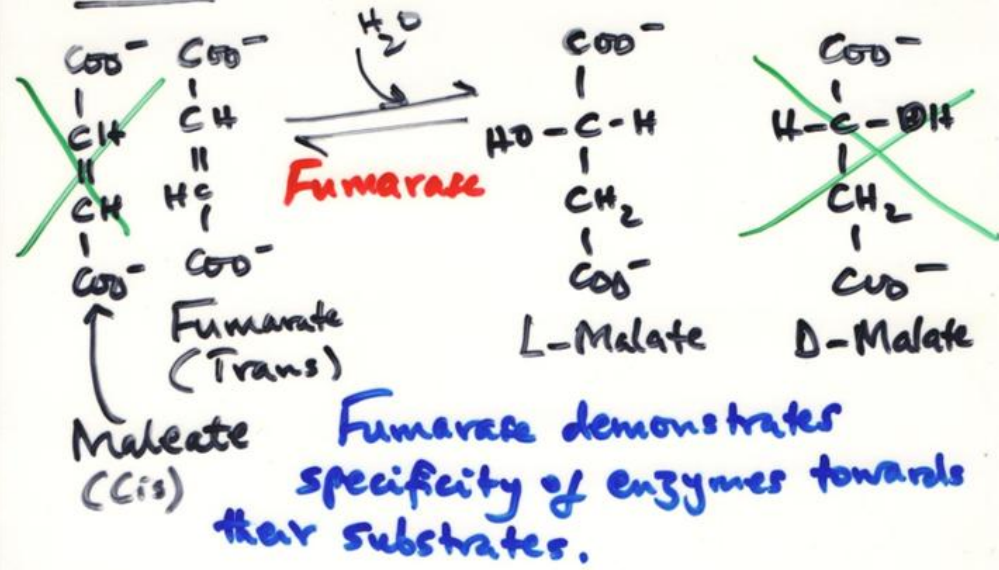 COO⁻ COO⁻ H₂O COO⁻ COO⁻
CH CH HO-C-H H-C-OH
|| ||
CH HC Fumarase CH₂ CH₂
COO⁻ COO⁻ COO⁻ COO⁻
Fumarate
(Trans)
L-Malate D-Malate
Maleate
(Cis)
Fumarase demonstrates
specificity of enzymes towards
their substrates.